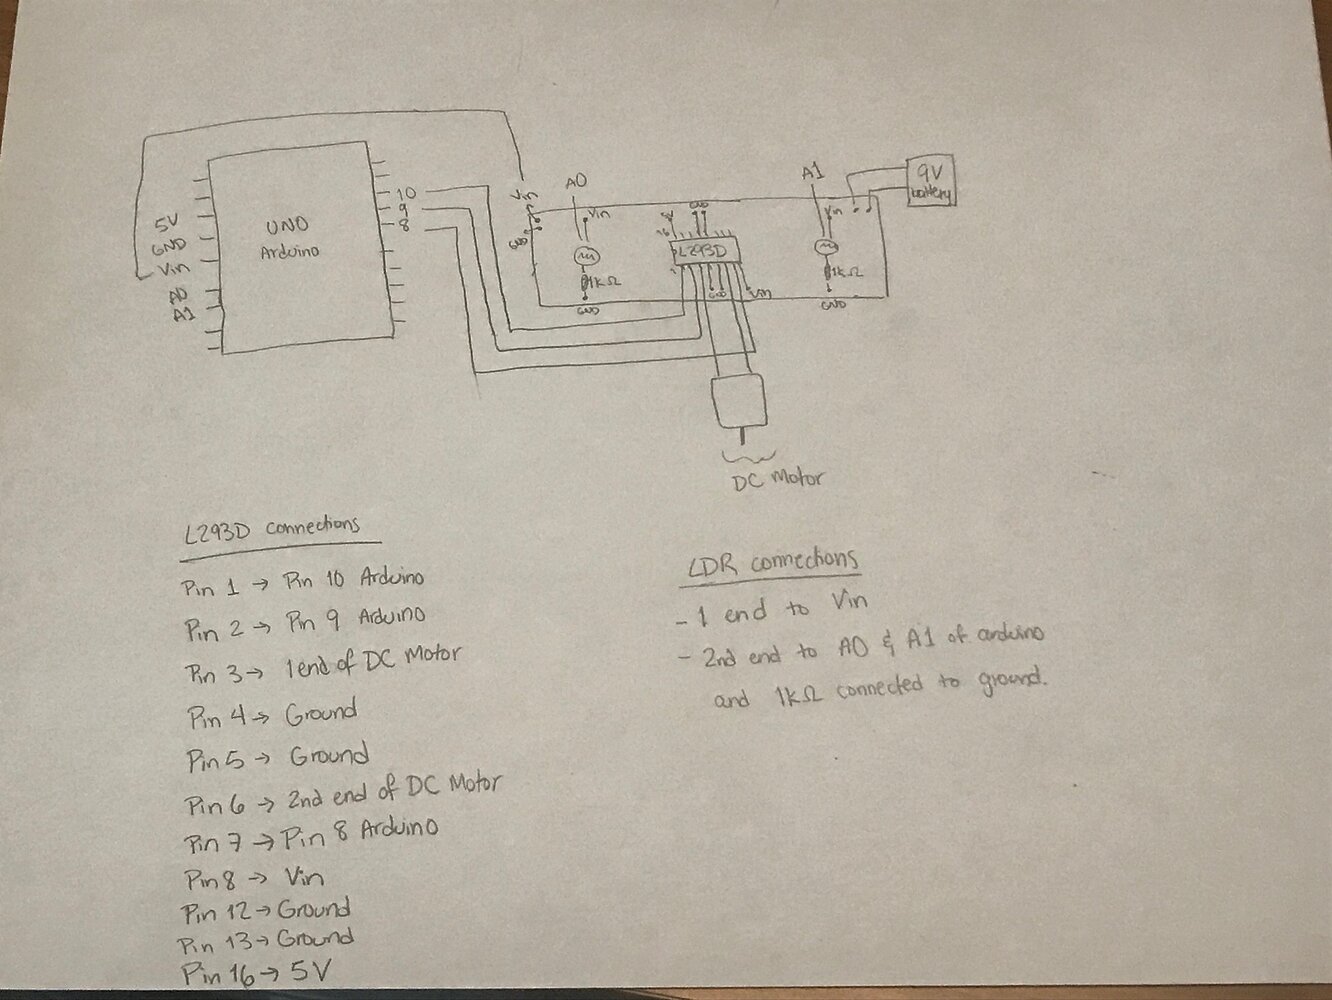 UNO
Arduino
5V
GND
Vin
A0
A1
10
9
8
Vin
GND
A0
Vin
1kΩ
GND
5V
16
GND
L293D
1
GND
Vin
A1
Vin
1kΩ
GND
9V
battery
DC Motor
L293D connections
Pin 1 → Pin 10 Arduino
Pin 2 → Pin 9 Arduino
Pin 3 → 1 end of DC Motor
Pin 4 → Ground
Pin 5 → Ground
Pin 6 → 2nd end of DC Motor
Pin 7 → Pin 8 Arduino
Pin 8 → Vin
Pin 12 → Ground
Pin 13 → Ground
Pin 16 → 5V
LDR connections
- 1 end to Vin
- 2nd end to A0 & A1 of arduino
and 1kΩ connected to ground.